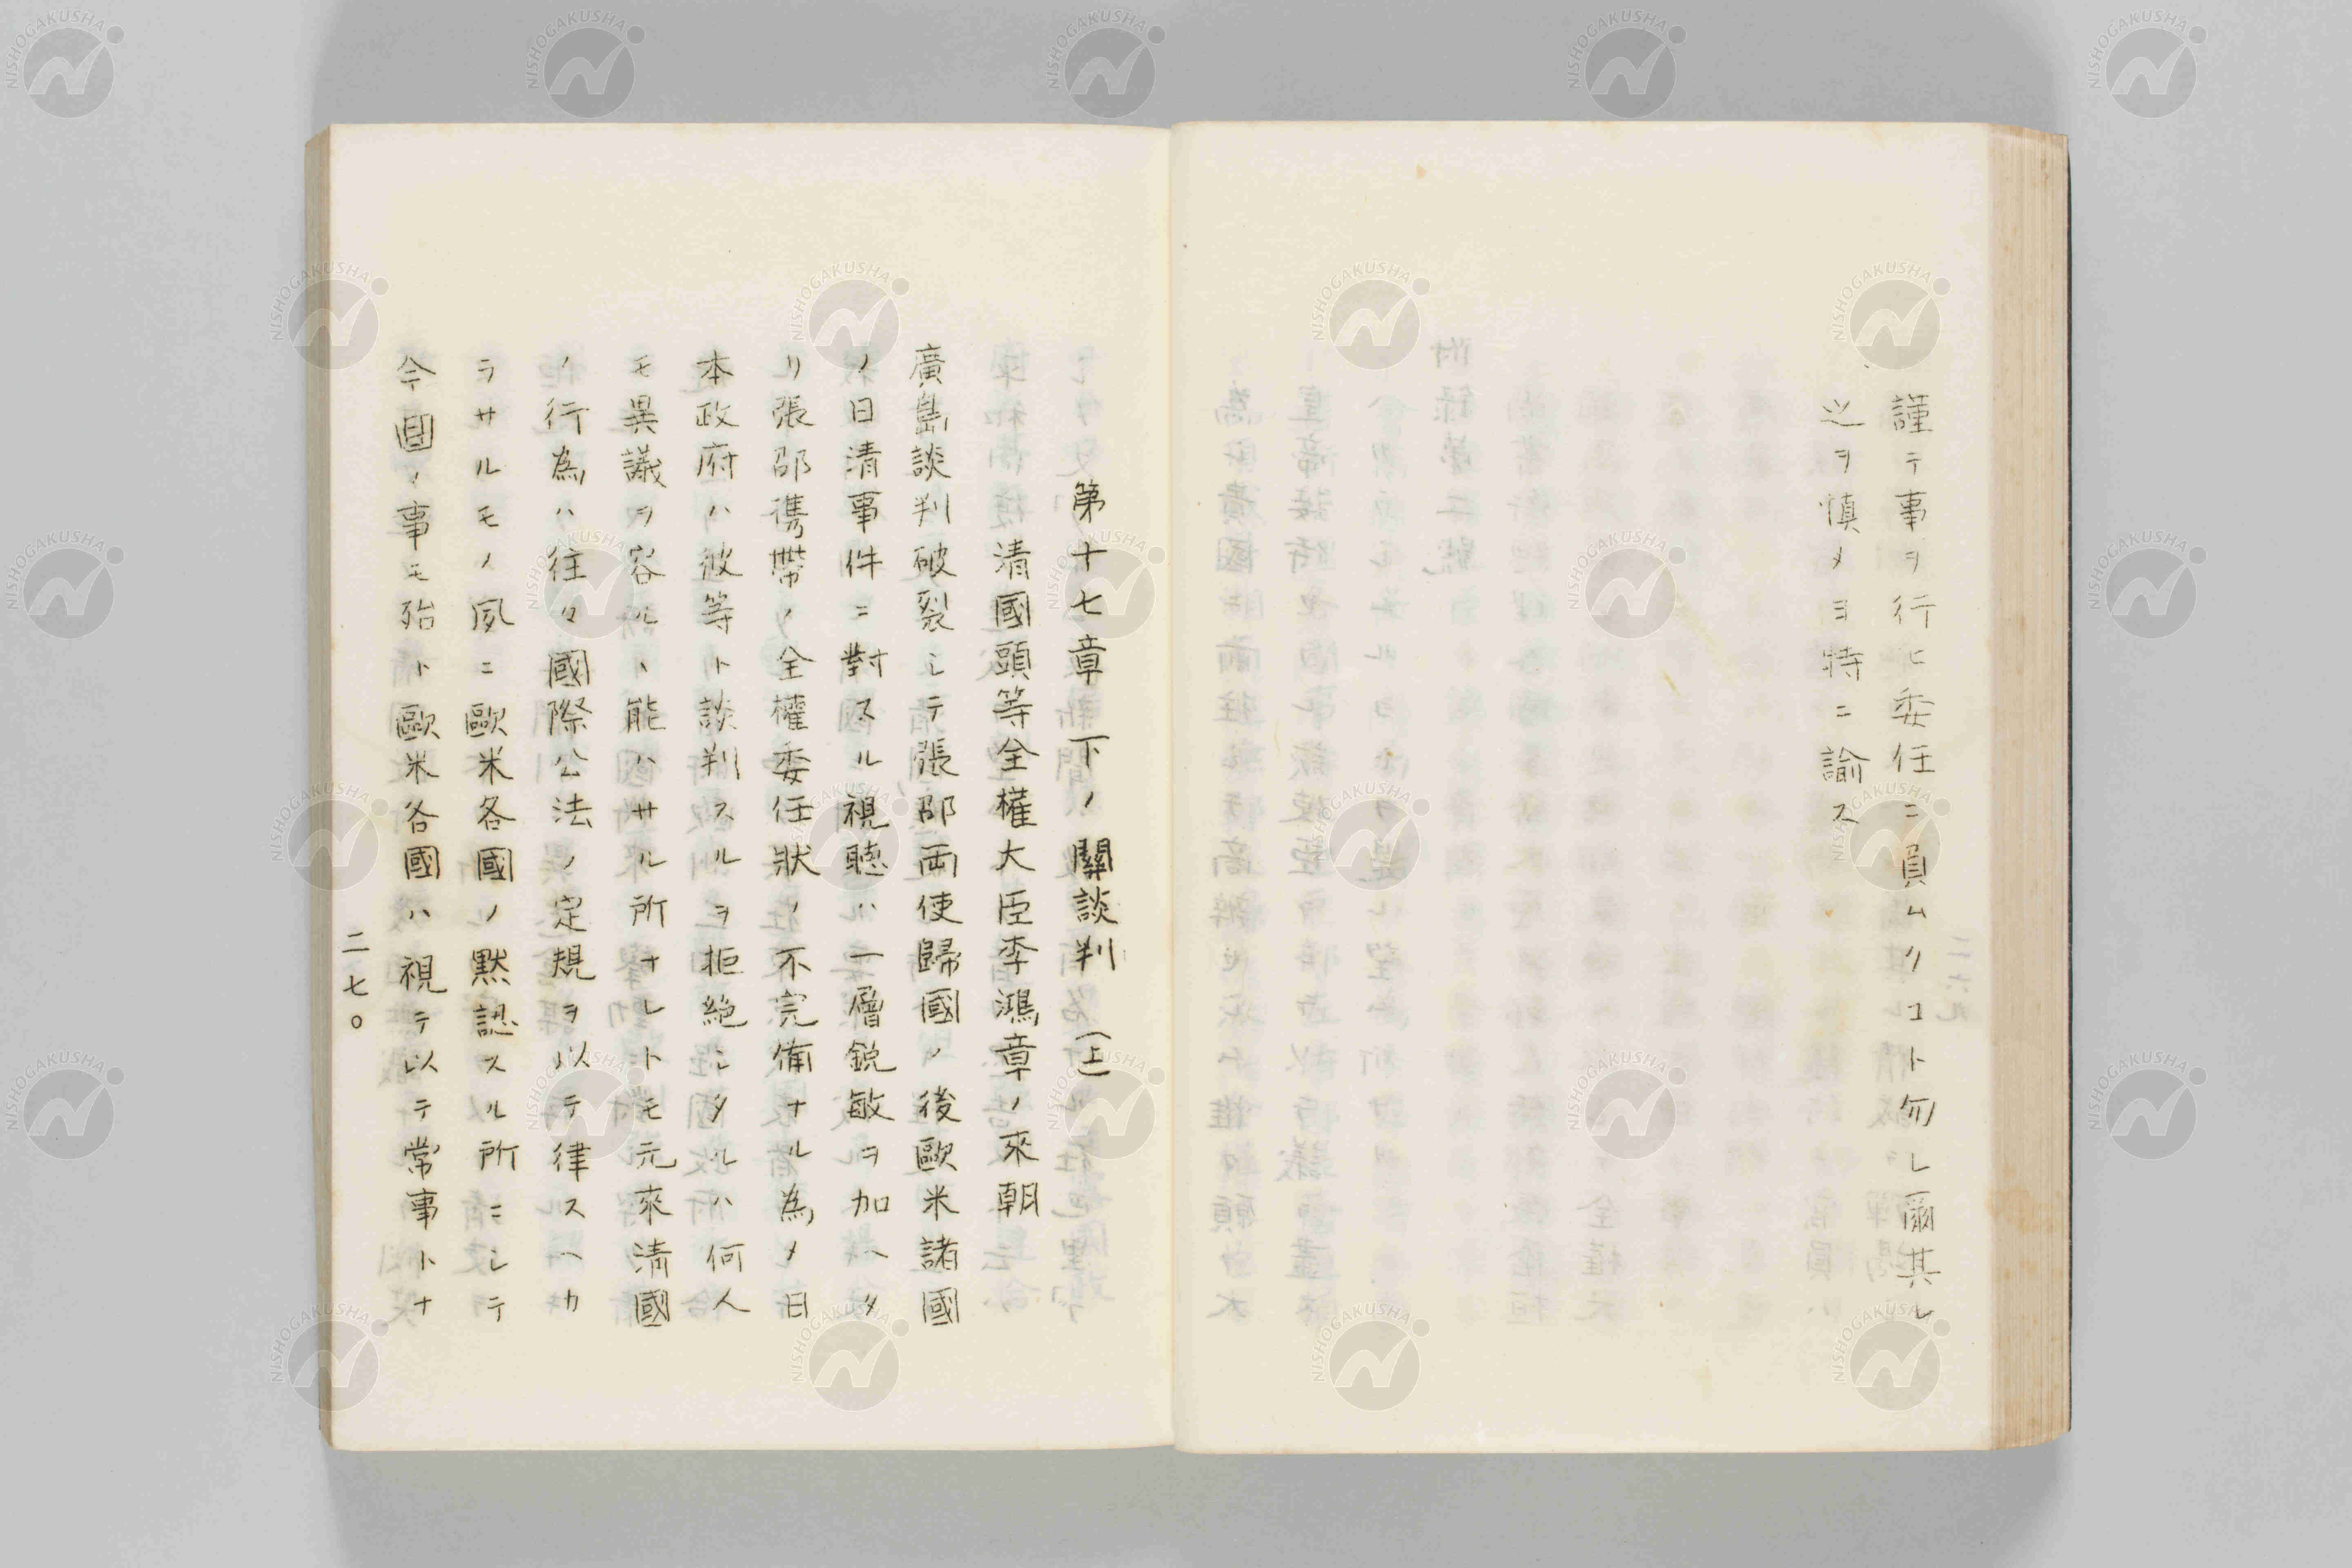 謹テ事ヲ行ヒ委任ニ員ムクコト勿レ爾其レ
之ヲ慎メヨ特ニ諭ス
第十七章 下ノ關談判 (上)
清國頭等全權大臣李鴻章ノ來朝
廣島談判破裂シテ張邵両使歸國ノ後歐米諸國
ノ日清事件ニ對スル視聴ハ一層鋭敏ヲ加ヘタ
リ張邵携帶ノ全權委任狀ノ不完備ナル為メ日
本政府ハ彼等ト談判スルヲ拒絶シタルハ何人
モ異議ヲ容ルヽ能ハサル所ナレトモ元來清國
ノ行為ハ往々國際公法ノ定規ヲ以テ律スヘカ
ラサルモノ夙ニ歐米各國ノ黙認スル所ニシテ
今回ノ事モ殆ト歐米各國ハ視テ以テ常事トナ
二七〇
NISHOGAKUSHA